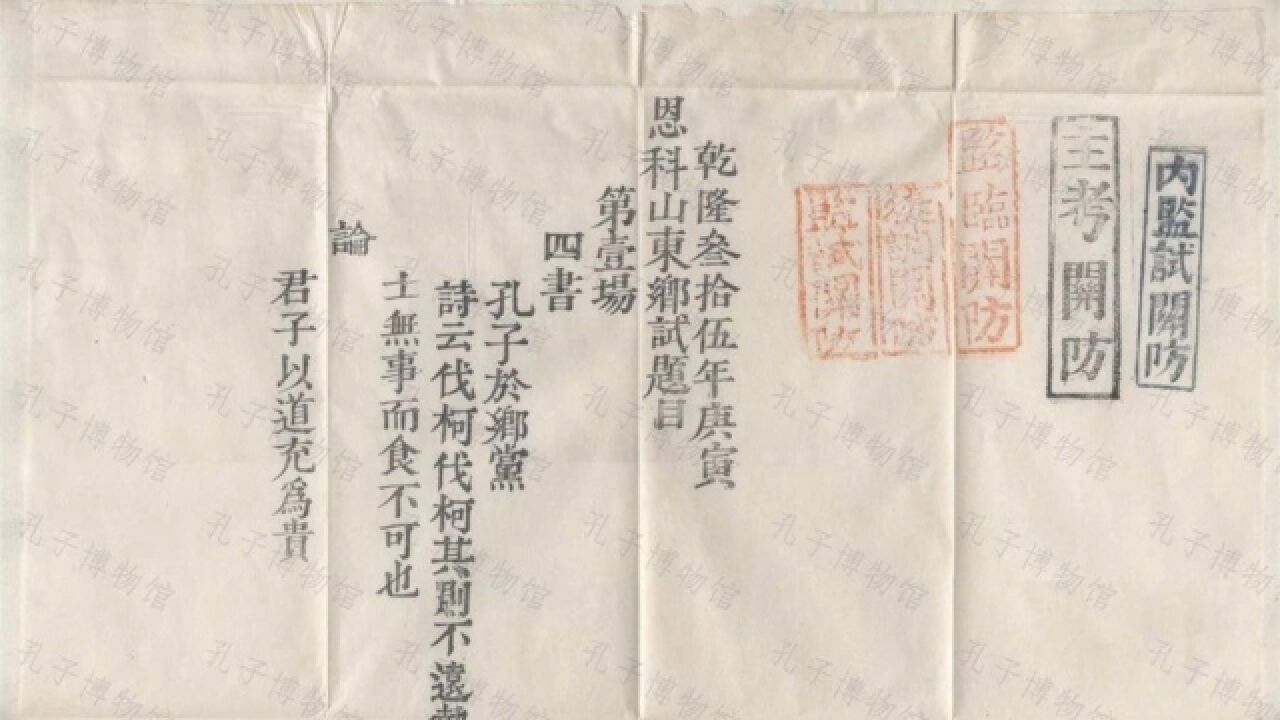 内監試關防
主考關防
監臨關防
提調關防
監試關防
乾隆叁拾伍年庚寅
恩科山東鄉試題目
第壹場
四書
孔子於鄉黨
詩云伐柯伐柯其則不遠執
士無事而食不可也
論
君子以道充爲貴
孔子博物馆